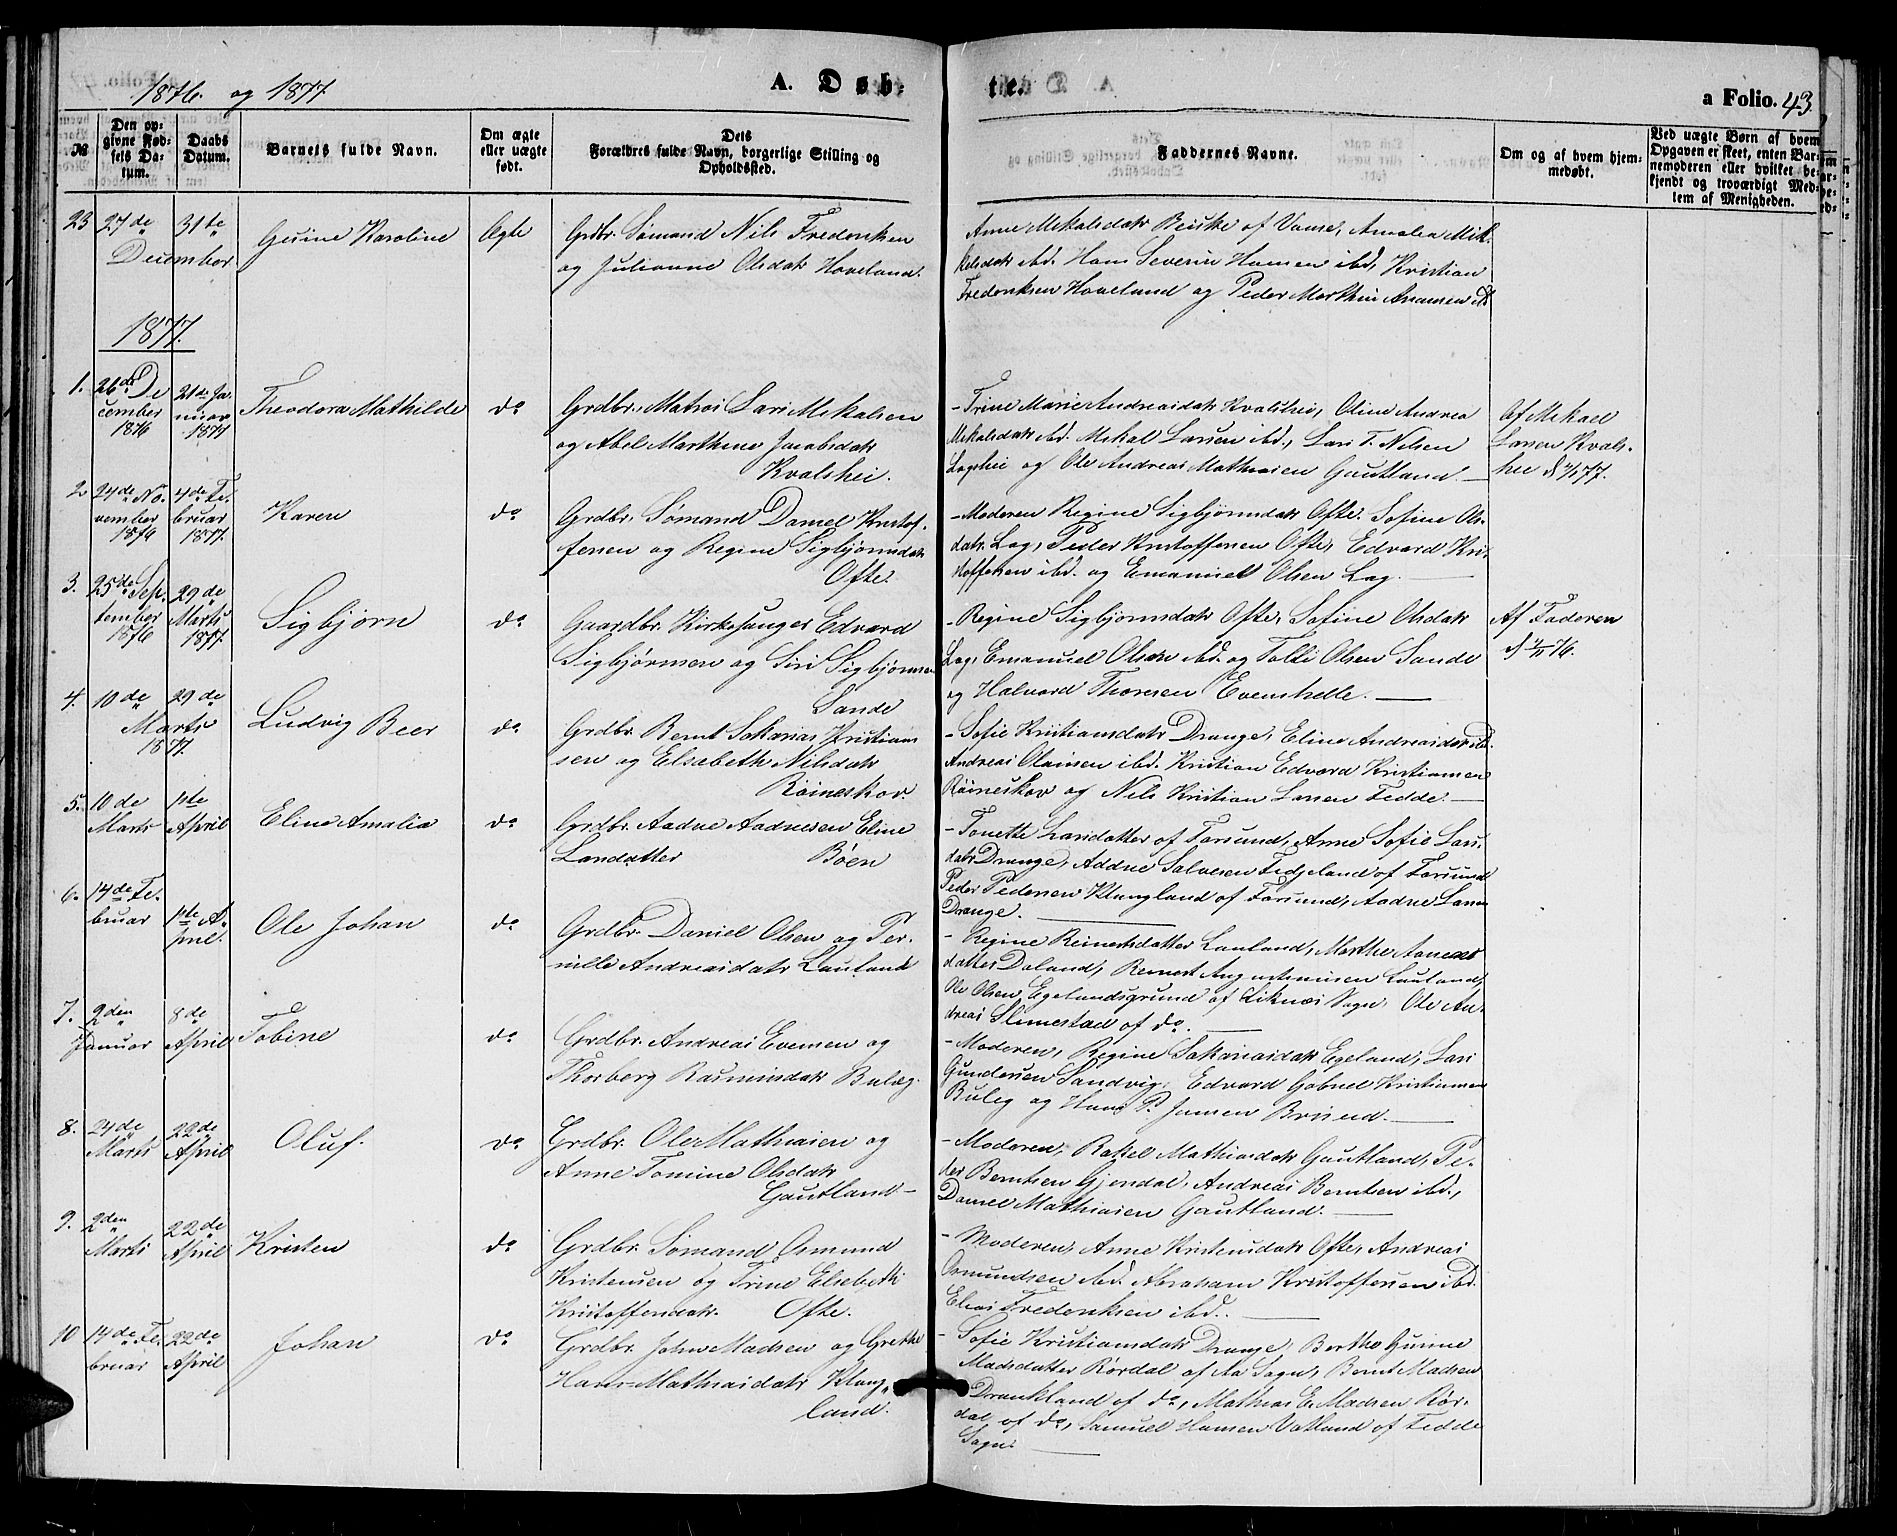 1876. og 1877.
A. Døb-
te.
a Folio. 43
№
Den op-
givne Fød-
sels Da-
tum.
Daabs
Datum.
Barnets fulde Navn.
Om ægte
eller uægte
født.
Dets
Forældres fulde Navn, borgerlige Stilling og
Opholdssted.
Faddernes Navne.
Om og af hvem hjem-
medøbt.
Ved uægte Børn af hvem
Opgaven er skeet, enten Bar-
nemoderen eller hvilket be-
kjendt og troværdigt Med-
lem af Menigheden.
23 27de 31te
December
Gusine Karoline
Ægte
Grdbr. Sømand Nils Fredriksen
og Julianne Olsdatr Hoveland.
Anne Mikalsdatr Beiske af Vanse, Amalia Mik-
kelsdatr ibd. Hans Severin Hansen ibd, Kristian
Fredriksen Hoveland og Peder Marthin Asamsen ibd
1877.
1. 26de De
cember
1876
21de Ja-
nuar
1877
Theodora Mathilde
do
Grdbr. Matros Lars Mikalsen
og Abel Marthine Jacobsdatr
Kvalshei.
- Trine Marie Andreasdatr Kvalshei, Oline Andrea
Mikalsdatr ibd. Mikal Larsen ibd., Lars T. Nilsen
Lagehei og Ole Andreas Mathiasen Gautland.
Af Mikael
Larsen Kvals-
hei d 2/1 77.
2 24de No-
vember
1876
4de Fe-
bruar
1877.
Karen
do
Grdbr. Sømand Daniel Kristof-
fersen og Regine Sigbjørnsdatr
Ofte.
- Moderen Regine Sigbjørnsdatr Ofte. Sofine Ols-
datr. Lag, Peder Kristoffersen Ofte, Edvard Kri-
stoffersen ibd. og Emanuel Olsen Lag.
3. 25de Sep-
tember
1876
29de
Marts
1877.
Sigbjørn
do
Gaardbr. Kirkesanger Edvard
Sigbjørnsen og Siri Sigbjørnsen
Sande
- Regine Sigbjørnsdatr Ofte, Sofine Olsdatr
Lag, Emanuel Olsen ibd. og Tolli Olsen Sande
og Halvord Thoresen Evenshelle.
Af Faderen
4. 10de 29de
Marts
1877.
Ludvig Beer
do
Grdbr. Bernt Sakarias Kristian-
sen og Elsebeth Nilsdatr
Røineskor.
- Sofie Kristiansdatr Drange, Eline Andreasdatr ibd.
Andreas Olaisen ibd. Kristian Edvard Kristiansen
Røineskor og Nels Kristian Larsen Fedde.
5. 10de
Marts
1ste
April
Eline Amalia
do
Grdbr. Aadne Aadnesen Eline
Larsdatter Bøen
- Tonette Larsdatter af Farsund, Anne Sofie Lars-
datr Drange, Addne Salvesen Fidjeland af Farsund
Peder Pedersen Klungland af Farsund, Aadne Larsen
Drange.
6. 14de Fe-
bruar
1ste A-
pril.
Ole Johan
do
Grdbr. Daniel Olsen og Per-
nille Andreasdatr Lauland
- Regine Reinertsdatter Lauland, Marthe Aanens-
datter Daland, Reinert Augustinusen Lauland,
Ole Olsen Egelandsgrund af Liknes Sogn. Ole An-
dreas Slimestad af do.
7. 2den
Januar
8de
April
Tobine
do
Grdbr. Andreas Evensen og
Thorberg Rasmusdatr Buleg.
- Moderen, Regine Sakariasdatr Egeland, Lars
Gundersen Sandvig, Edvard Gabriel Kristiansen
Buleg og Hans P. Jansen Briseid.
8. 24de
Marts
22de
April
Oluf.
do
Grdbr. Ole Mathiasen og
Anne Tomine Olsdatr
Gautland
- Moderen, Rakel Mathiasdatr Gautland, Pe-
der Berntsen Gjendal, Andreas Berntsen ibd.,
Daniel Mathiasen Gautland.
9. 2den
Marts
22de
April
Kristen
do
Grdbr. Sømand Osmund
Kristensen og Trine Elsebeth
Kristoffersdatr. Ofte.
- Moderen, Anne Kristensdatr Ofte, Andreas
Osmundsen ibd. Abraham Kristoffersen ibd.
Elias Fredriksen ibd.
10 14de Fe-
bruar
22de
April
Johan
do
Grdbr. John Madsen og Grethe
Hans Mathiasdatr Klung-
land.
- Sofie Kristiansdatr Drange, Berthe Gusine
Madsdatter Rørdal af Aa Sogn, Bernt Madsen
Drankland af do, Mathias E. Madsen Rør-
dal af do, Samuel Hansen Vatland af Fedde
Sogn.